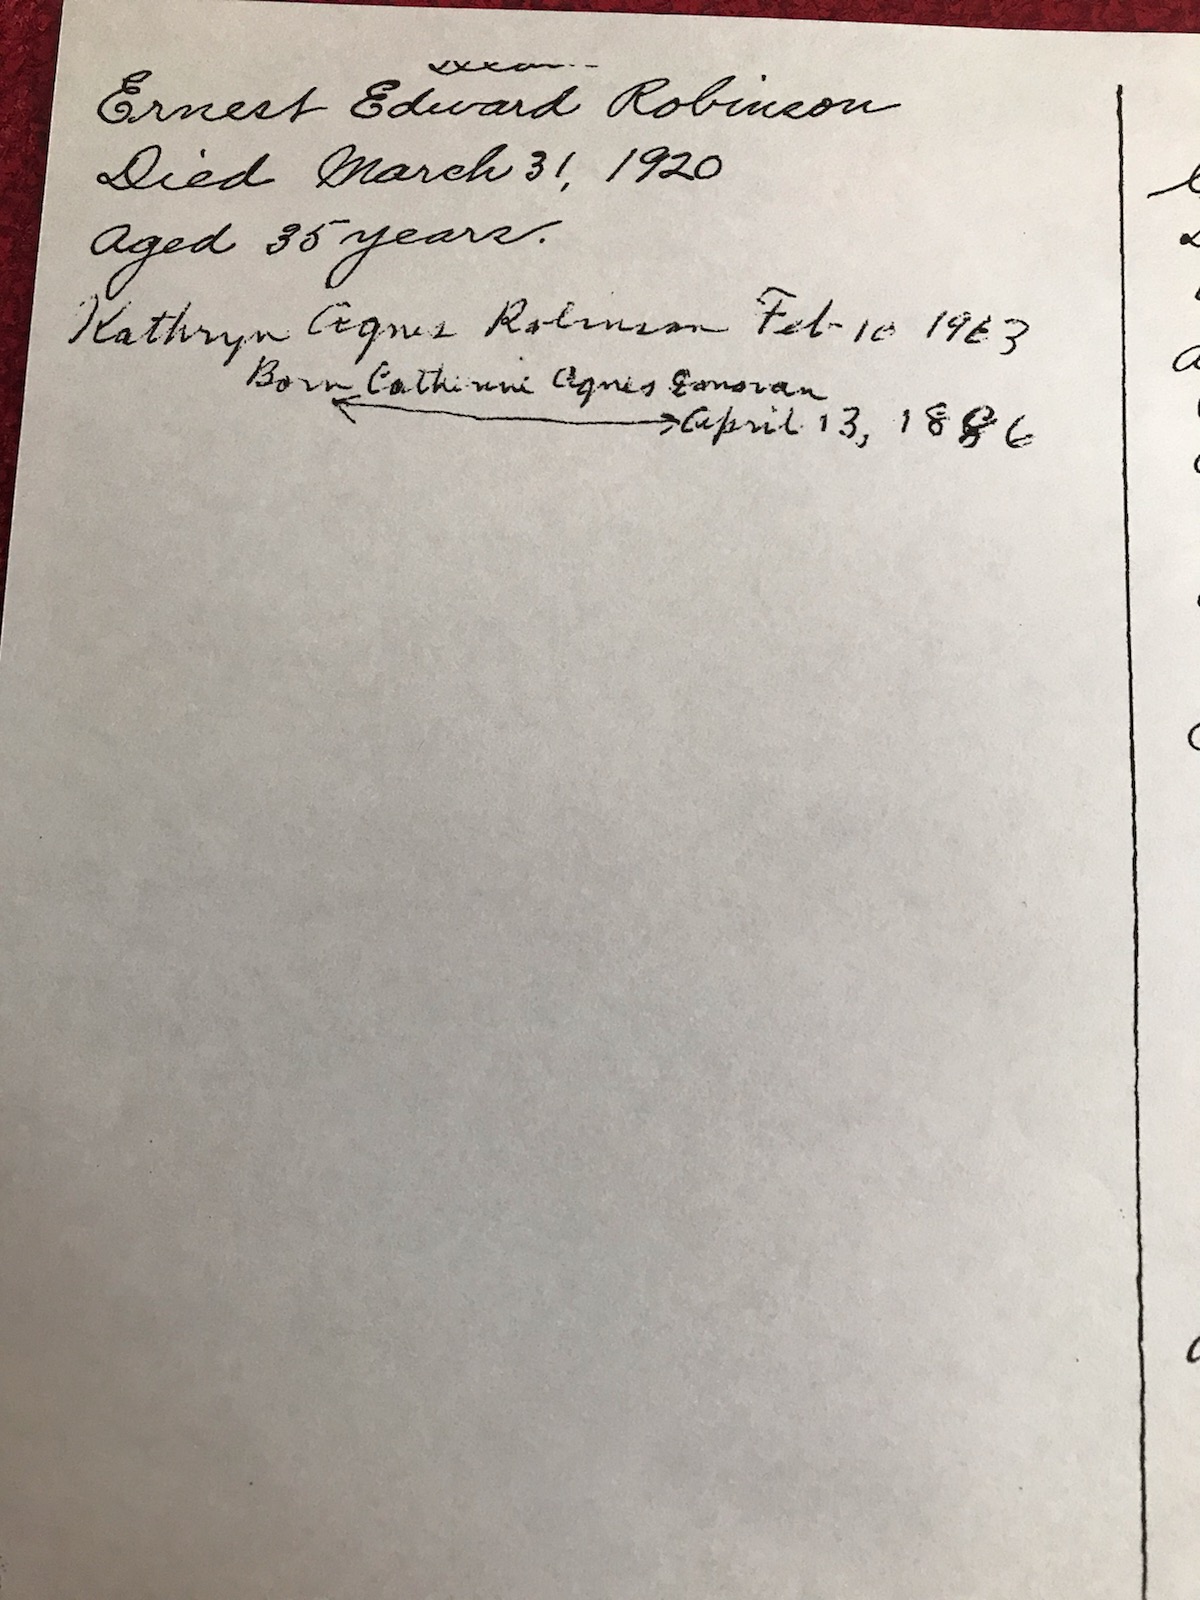 Ernest Edward Robinson
Died March 31, 1920
Aged 35 years.
Kathryn Agnes Robinson Feb 10 1963
Born Catherine Agnes Donovan
April 13, 1886